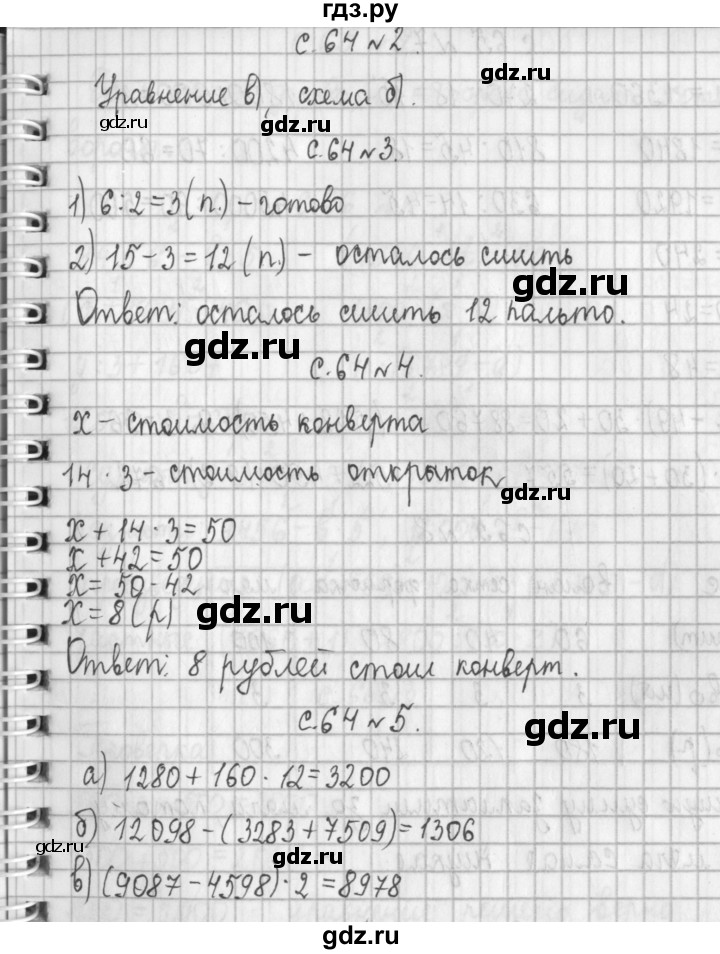 гдз.ру
с. 64 №2.
Уравнение в), схема б).
gdz.ru
gdz.ru
с. 64 №3.
1) 6 : 2 = 3 (п.) – готово
2) 15 – 3 = 12 (п.) – осталось сшить
gdz.ru
Ответ: осталось сшить 12 пальто.
gdz.ru
с. 64 №4.
x – стоимость конверта
14 · 3 – стоимость открыток
gdz.ru
x + 14 · 3 = 50
x + 42 = 50
x = 50 - 42
x = 8 (р)
gdz.ru
Ответ: 8 рублей стоил конверт.
с. 64 №5.
gdz.ru
а) 1280 + 160 · 12 = 3200
б) 12098 – (3283 + 7509) = 1306
gdz.ru
gdz.ru
в) (9087 – 4598) · 2 = 8978
gdz.ru